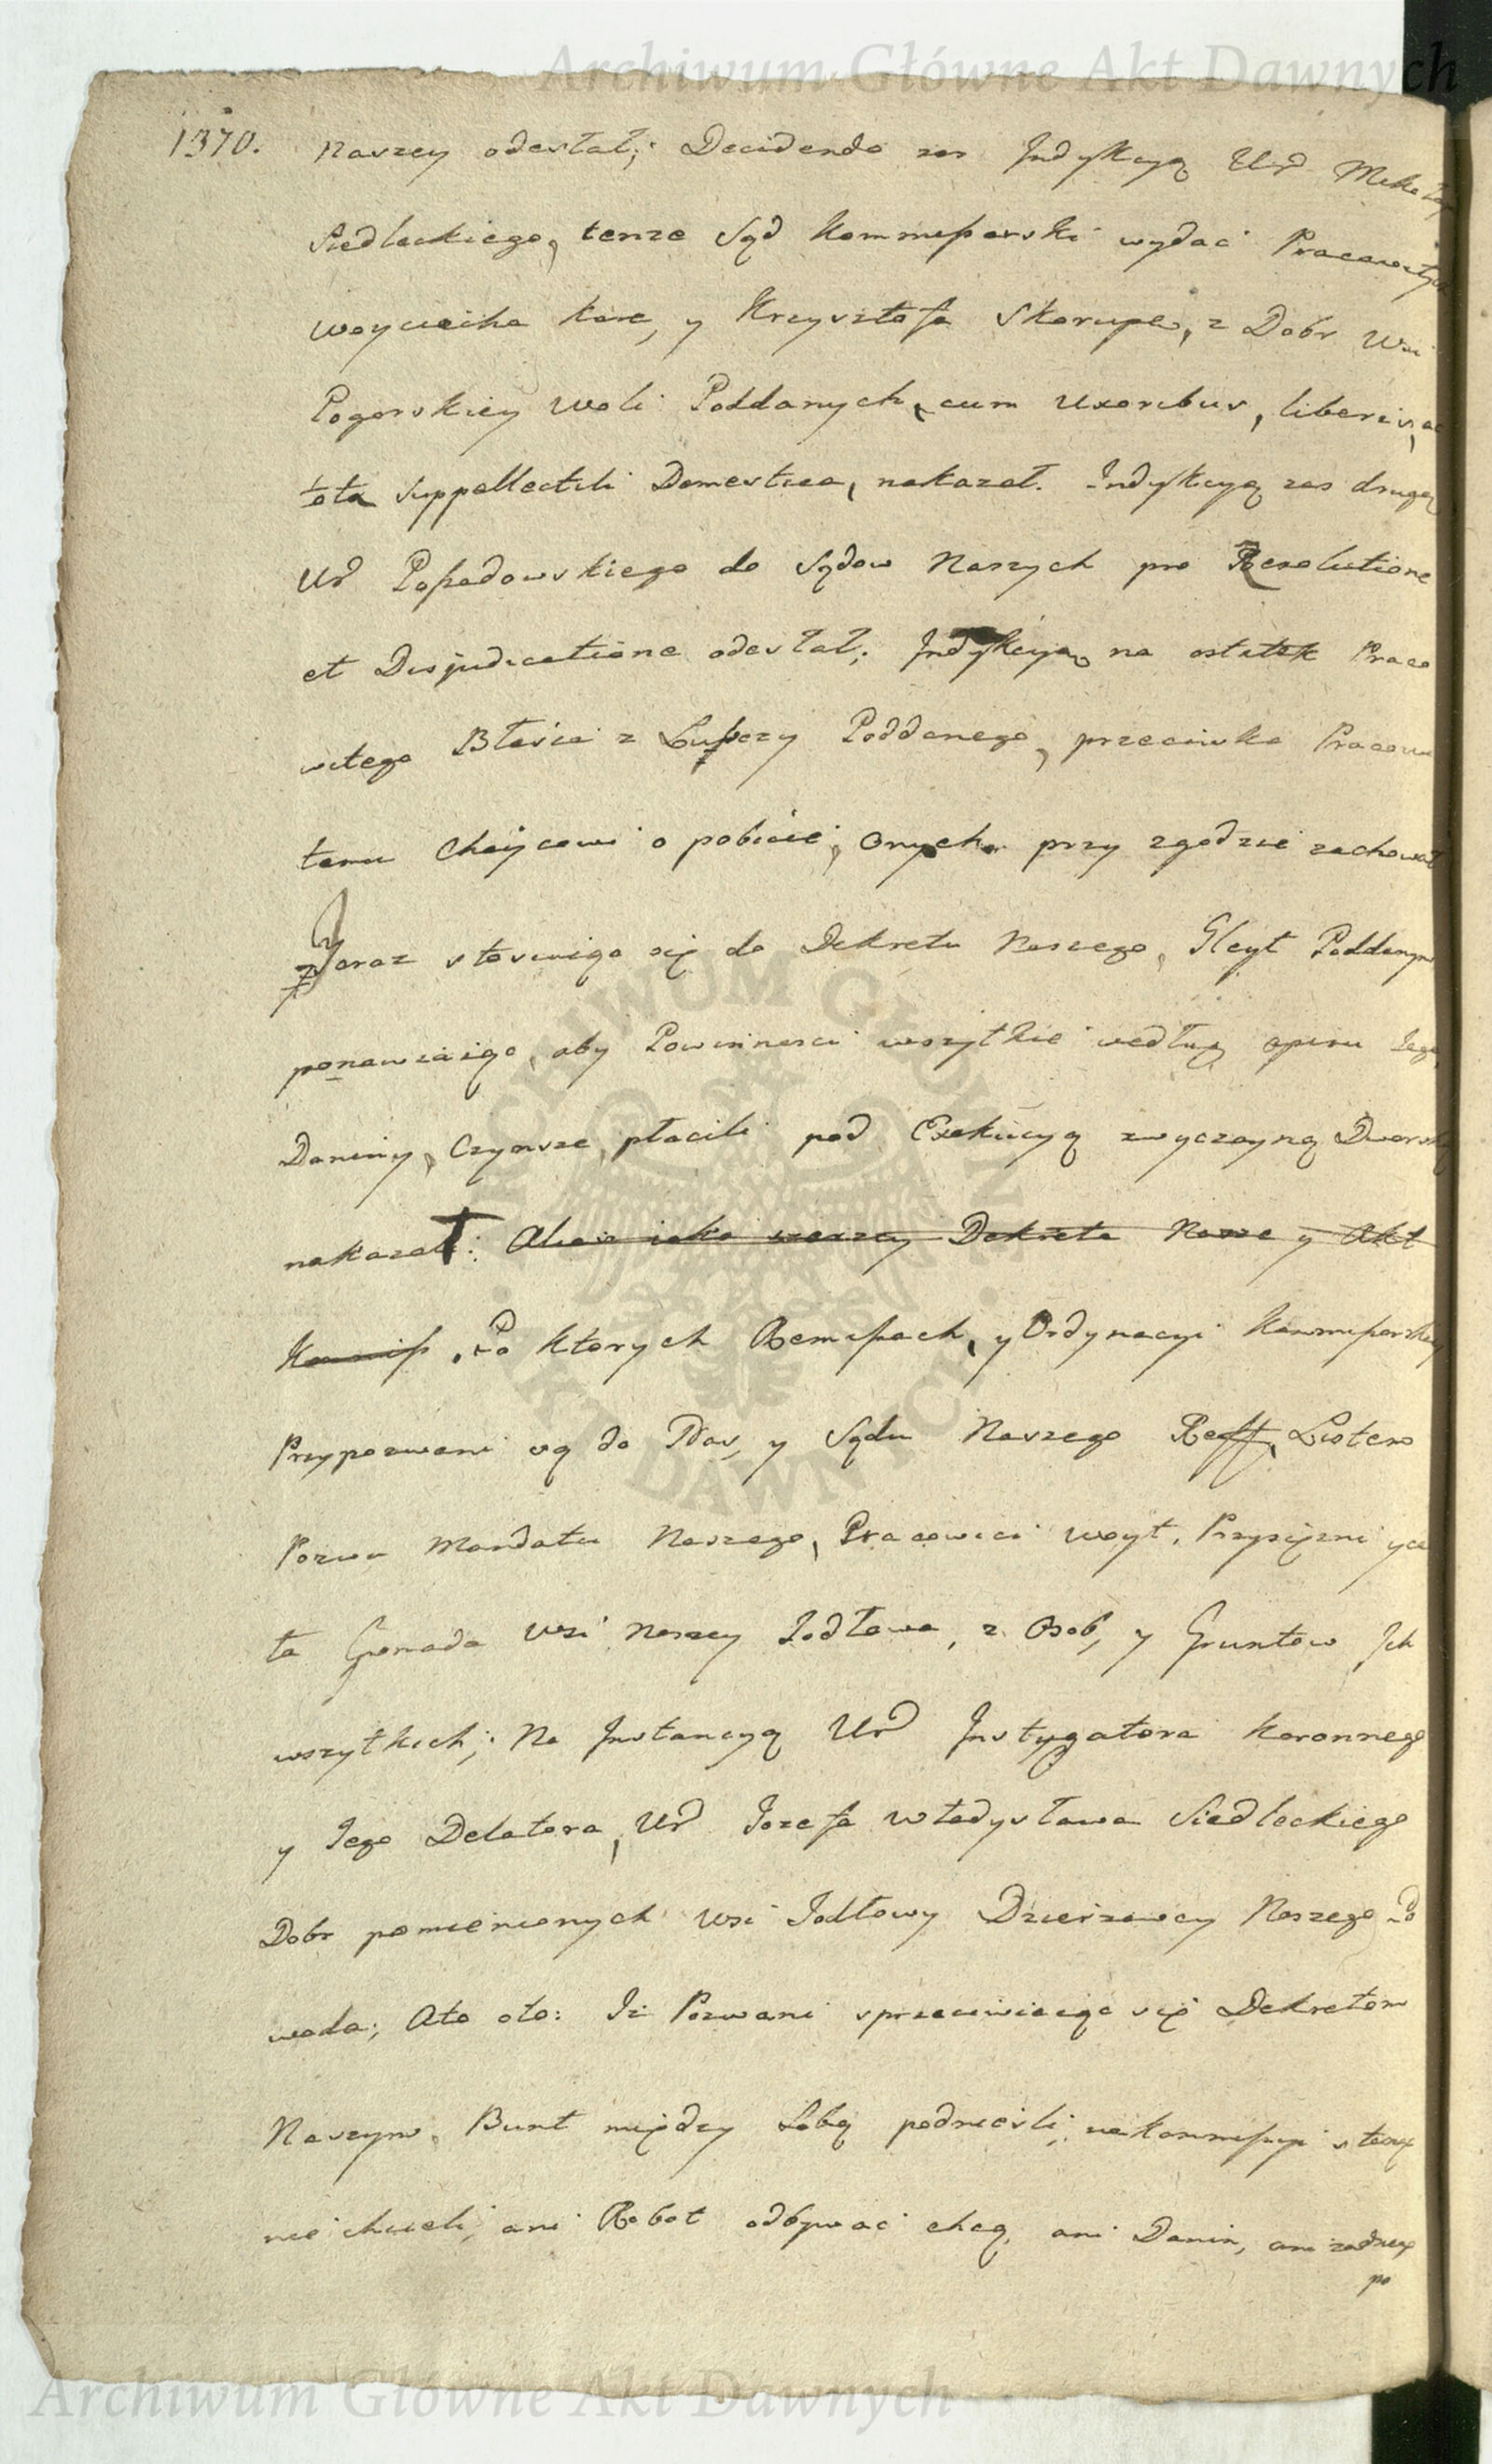 Archiwum Główne Akt Dawnych
1370. Naszey odesłał; Decidendo zas Indykcyą Ur
Siedleckiego, tenze Sąd Kommissarski wydac Pracowitych
Woyciecha Kare, y Krzysztofa Skorupe, z Dobr Wsi
Pogorskiey Woli Poddanych, cum Uxoribus, liberis, ac
tota Suppellectili Domestica, nakazał. Indykcyą zas drugą
Ur Possadowskiego do Sądow Naszych pro Resolutione
et Disjudicatione odesłał; Indykcyą na ostatek Praco
witego Błasia z Lupczy Poddanego, przeciwko Pracowi
temu Chaycowi o pobicie, Onych przy zgodzie zachował
Zaraz stosuiąc się do Dekretu Naszego, Gleyt Poddanym
ponawiaiąc, aby Powinnosci wszytkie według opisu Iego
Daniny, Czynsze, płacili pod Exekucyą zwyczayną Dworską
nakazał: Akt
Kommiss. Po ktorych Remissach, y Ordynacyi Kommissarskiey
Przypozwani są do Nas, y Sądu Naszego Reff, Listem
Pozwu Mandatu Naszego, Pracowici Woyt, Przysięzni y ca
ła Gromada Wsi Naszey Jodłowa, z Osob, y Gruntow Ich
wszytkich; Na Instancyą Ur Instygatora Koronnego
y Iego Delatora, Ur Jozefa Władysława Siedleckiego
Dobr pomienionych Wsi Jodłowy Dzierzawcy Naszego Po
woda; Oto oto: Iz Pozwani sprzeciwiaiąc się Dekretom
Naszym, Bunt między Sobą podniesli, na Kommissyi stawać
nie chcieli, ani Robot odbywac chcą, ani Danin, ani zadney
po
ARCHIWUM GŁÓWNE
AKT DAWNYCH
Archiwum Główne Akt Dawnych